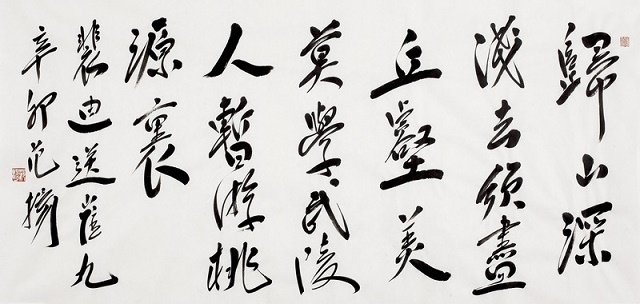 歸山深
淺去須盡
丘壑美
莫學武陵
人暫游桃
源裏
裴迪送崔九
辛卯范擴